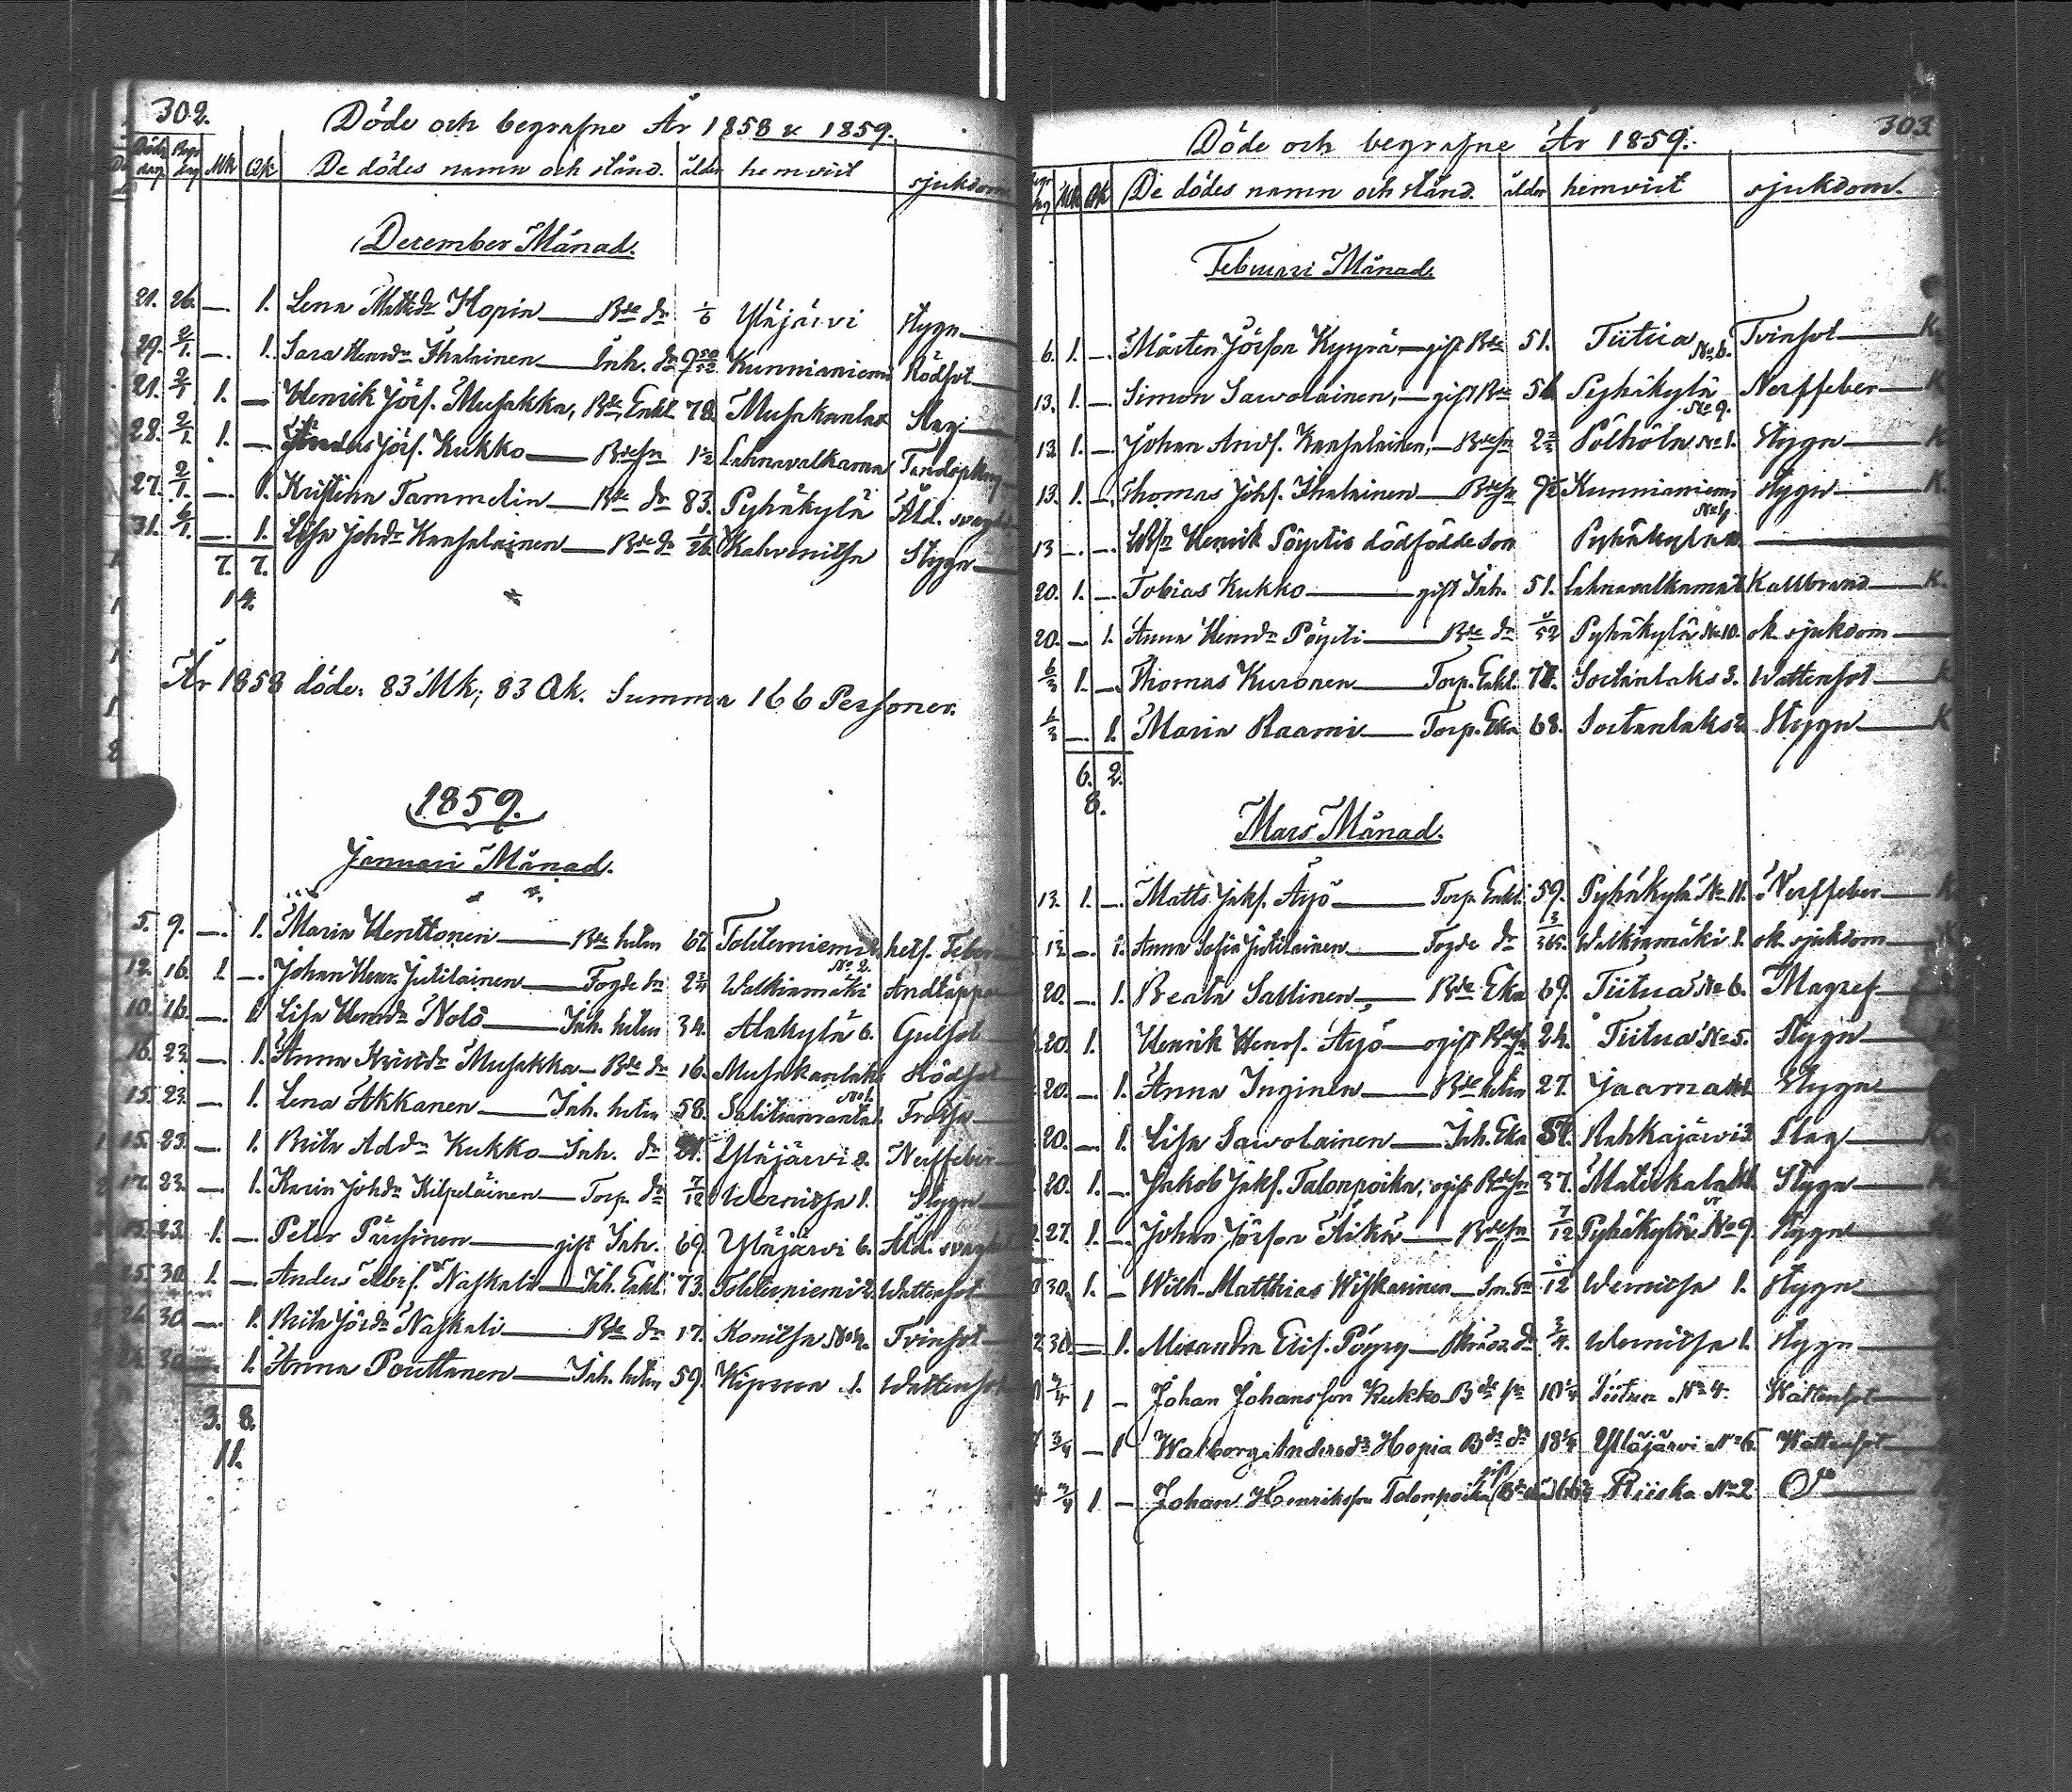 302.
Döde och begrafne År 1858 & 1859.
Döds dag Begr dag Mk Qk De dödes namn och stånd. ålder hemvist sjukdom
December Månad.
21. 26. — 1. Lena Mattsdr Hopia — Bde dr 1/6 Yläjärvi Stygn —
29. 2/1. — 1. Sara Henrdr Ihalainen — Inh. dr Kunnianiemi Rödsot
21. 2/1 1. — Henrik Jörs. Musakka, Bde Enkl. 78. Musakanlax Slag —
28. 2/1. 1. — Jörs. Kukko — Bdesn 1 1/2 Lahnavalkama
27. 2/1. — 1. Kristina Tammelin — Bde dr 83. Pyhäkylä Åld. svagh
31. 6/1. — 1. Lisa Johdr Kansalainen — Bde dr 1/26 Kahvenitsa Stygn —
7. 7.
14.
År 1858 döde: 83 Mk; 83 Qk. Summa 166 Personer.
1859.
Januari Månad.
5. 9. — 1. Maria Henttonen — Bde hstru 67. Tolstemiemi 2. hets. Feber
12. 16. 1 — Johan Henr. Jutilainen — Fogde sn 2 Walkiamäki No 2. Andtäppa
10. 16. — 1 Lisa Henrdr Nolo — Inh. hstru 34. Alakylä 6. Gulsot
16. 23. — 1. Anna Musakka — Bde dr 16. Musakanlaks Rödsot
15. 23. — 1. Lena Akkanen — Inh. hstru 58. No 1. Frossa —
15. 23. — 1. Brita Addr Kukko — Inh. dr Yläjärvi 2. Nerffeber
17. 23. — 1. Karin Johdr Kilpeläinen — Torp. dr 7/12 Wernitsa 1. Stygn —
15. 23. 1. — Peter Pärssinen — gift Inh. 69. Yläjärvi 6. Åld. svagh
25. 30. 1. — Anders Abrs. Naskali — Inh. Enkl. 73. Tolstemiemi 2. Wattensot
26. 30. — 1. Brita Jördr Naskali — Bde dr 17. Konitsa No 4. Tvinsot —
30. — 1. Anna Pouttanen — Inh. hstru 59. Kiprua 1. Wattensot
3. 8.
11.
303.
Döde och begrafne År 1859.
Begr dag Mk Qk De dödes namn och stånd. ålder hemvist sjukdom.
Februari Månad.
6. 1. — Mårten Jörsson Kyyrä — gift Bde 51. Tiitua No 6. Tvinsot — K.
13. 1. — Simon Sawolainen, — gift Bde 56 Pyhäkylä No 9. Nerffeber — K
13. 1. — Johan Ands. Kansalainen, — Bdesn 2 Pölhölä No 1. Stygn — K
13. 1. — Thomas Johs. Ihalainen — Bdesn Kunnianiemi No 4. Stygn — K.
13 — — Henrik Pöystis dödfödde son Pyhäkylä —
20. 1. — Tobias Kukko — gift Inh. 51. Lahnavalkama Kallbrand — K.
20. — 1. Anna Henrdr Pöysti — Bde dr /52 Pyhäkylä No 10. ok. sjukdom —
6/3 1. — Thomas Kuronen — Torp. Enkl. Soitanlaks 3. Wattensot — K
6/3 — 1. Maria Raami — Torp. Eka 68. Soitanlaks 2. Stygn — K
6. 2.
8.
Mars Månad.
13. 1. — Matts Jaks. Äyö — Torp. Enkl. 59. Pyhäkylä No 11. Nerffeber —
13. — 1. Anna Sofia Jutilainen — Fogde dr 3/365. Walkiamäki 1. ok. sjukdom —
20. — 1. Beata Sallinen — Bde Eka 69. Tiitua No 6. Magref —
20. 1. Henrik Henrs. Äyö — ogift Bdesn 24. Tiitua No 5. Stygn —
20. — 1. Anna Inginen — Bde hstru 27. Jaama Stygn —
20. — 1. Lisa Sawolainen — Inh. Eka Rahkajärvi 3. Slag —
20. 1. — Jakob Jaks. Talonpoika, ogift Bdesn 37. Matiskala Stygn —
27. 1. — Johan Jörsson Äikä — Bdesn 7/12 Pyhäkylä No 9. Stygn —
30. 1. — Wilh. Matthias Wiskarinen — Sn. Sn /12 Wernitsa 1. Stygn —
30. — 1. Alexandra Elis. Pöyry — dr 3/4. Wernitsa 1. Stygn —
3/4 1 — Johan Johansson Kukko Bde sn 10 1/4 Tiitua No 4. Wattensot —
3/4 — 1 Walborg Andersdr Hopia Bde dr 18 1/4 Yläjärvi No 6. Wattensot —
1 — Johan Henriksson Talonpoika gift Riiska No 2 Do —